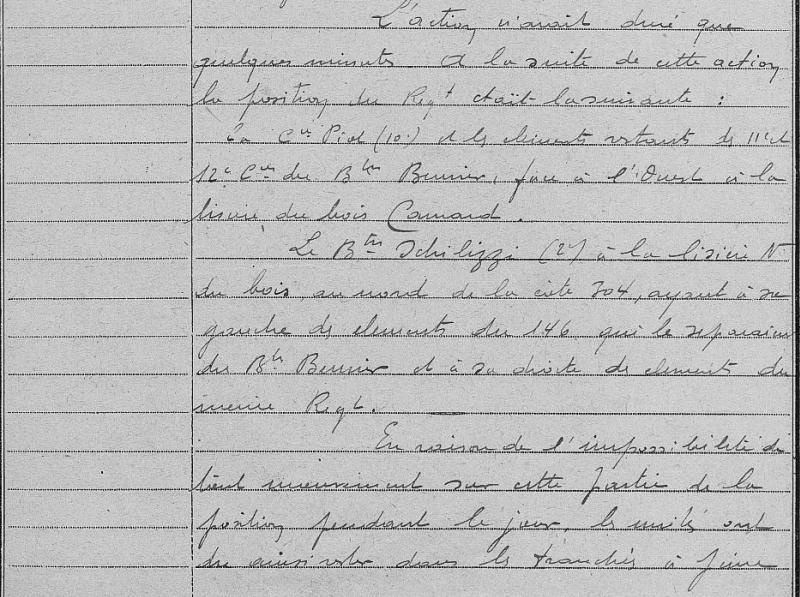 L'action n'avait duré que
quelques minutes A la suite de cette action
la position du Regt était la suivante :
La Cie Piot (10e) et les éléments restants des 11e et
12e Cies du Btn Bernier, face à l'Ouest à la
lisière du bois Camard.
Le Btn Schilizzi (2e) à la lisière N
du bois, au nord de la côte 304, ayant à sa
gauche des elements du 146 qui le séparaient
du Btn Bernier et à sa droite des elements du
même Regt.
En raison de l'impossibilité de
tout mouvement sur cette partie de la
position pendant le jour, les unités ont
du ainsi rester dans les tranchées à peine